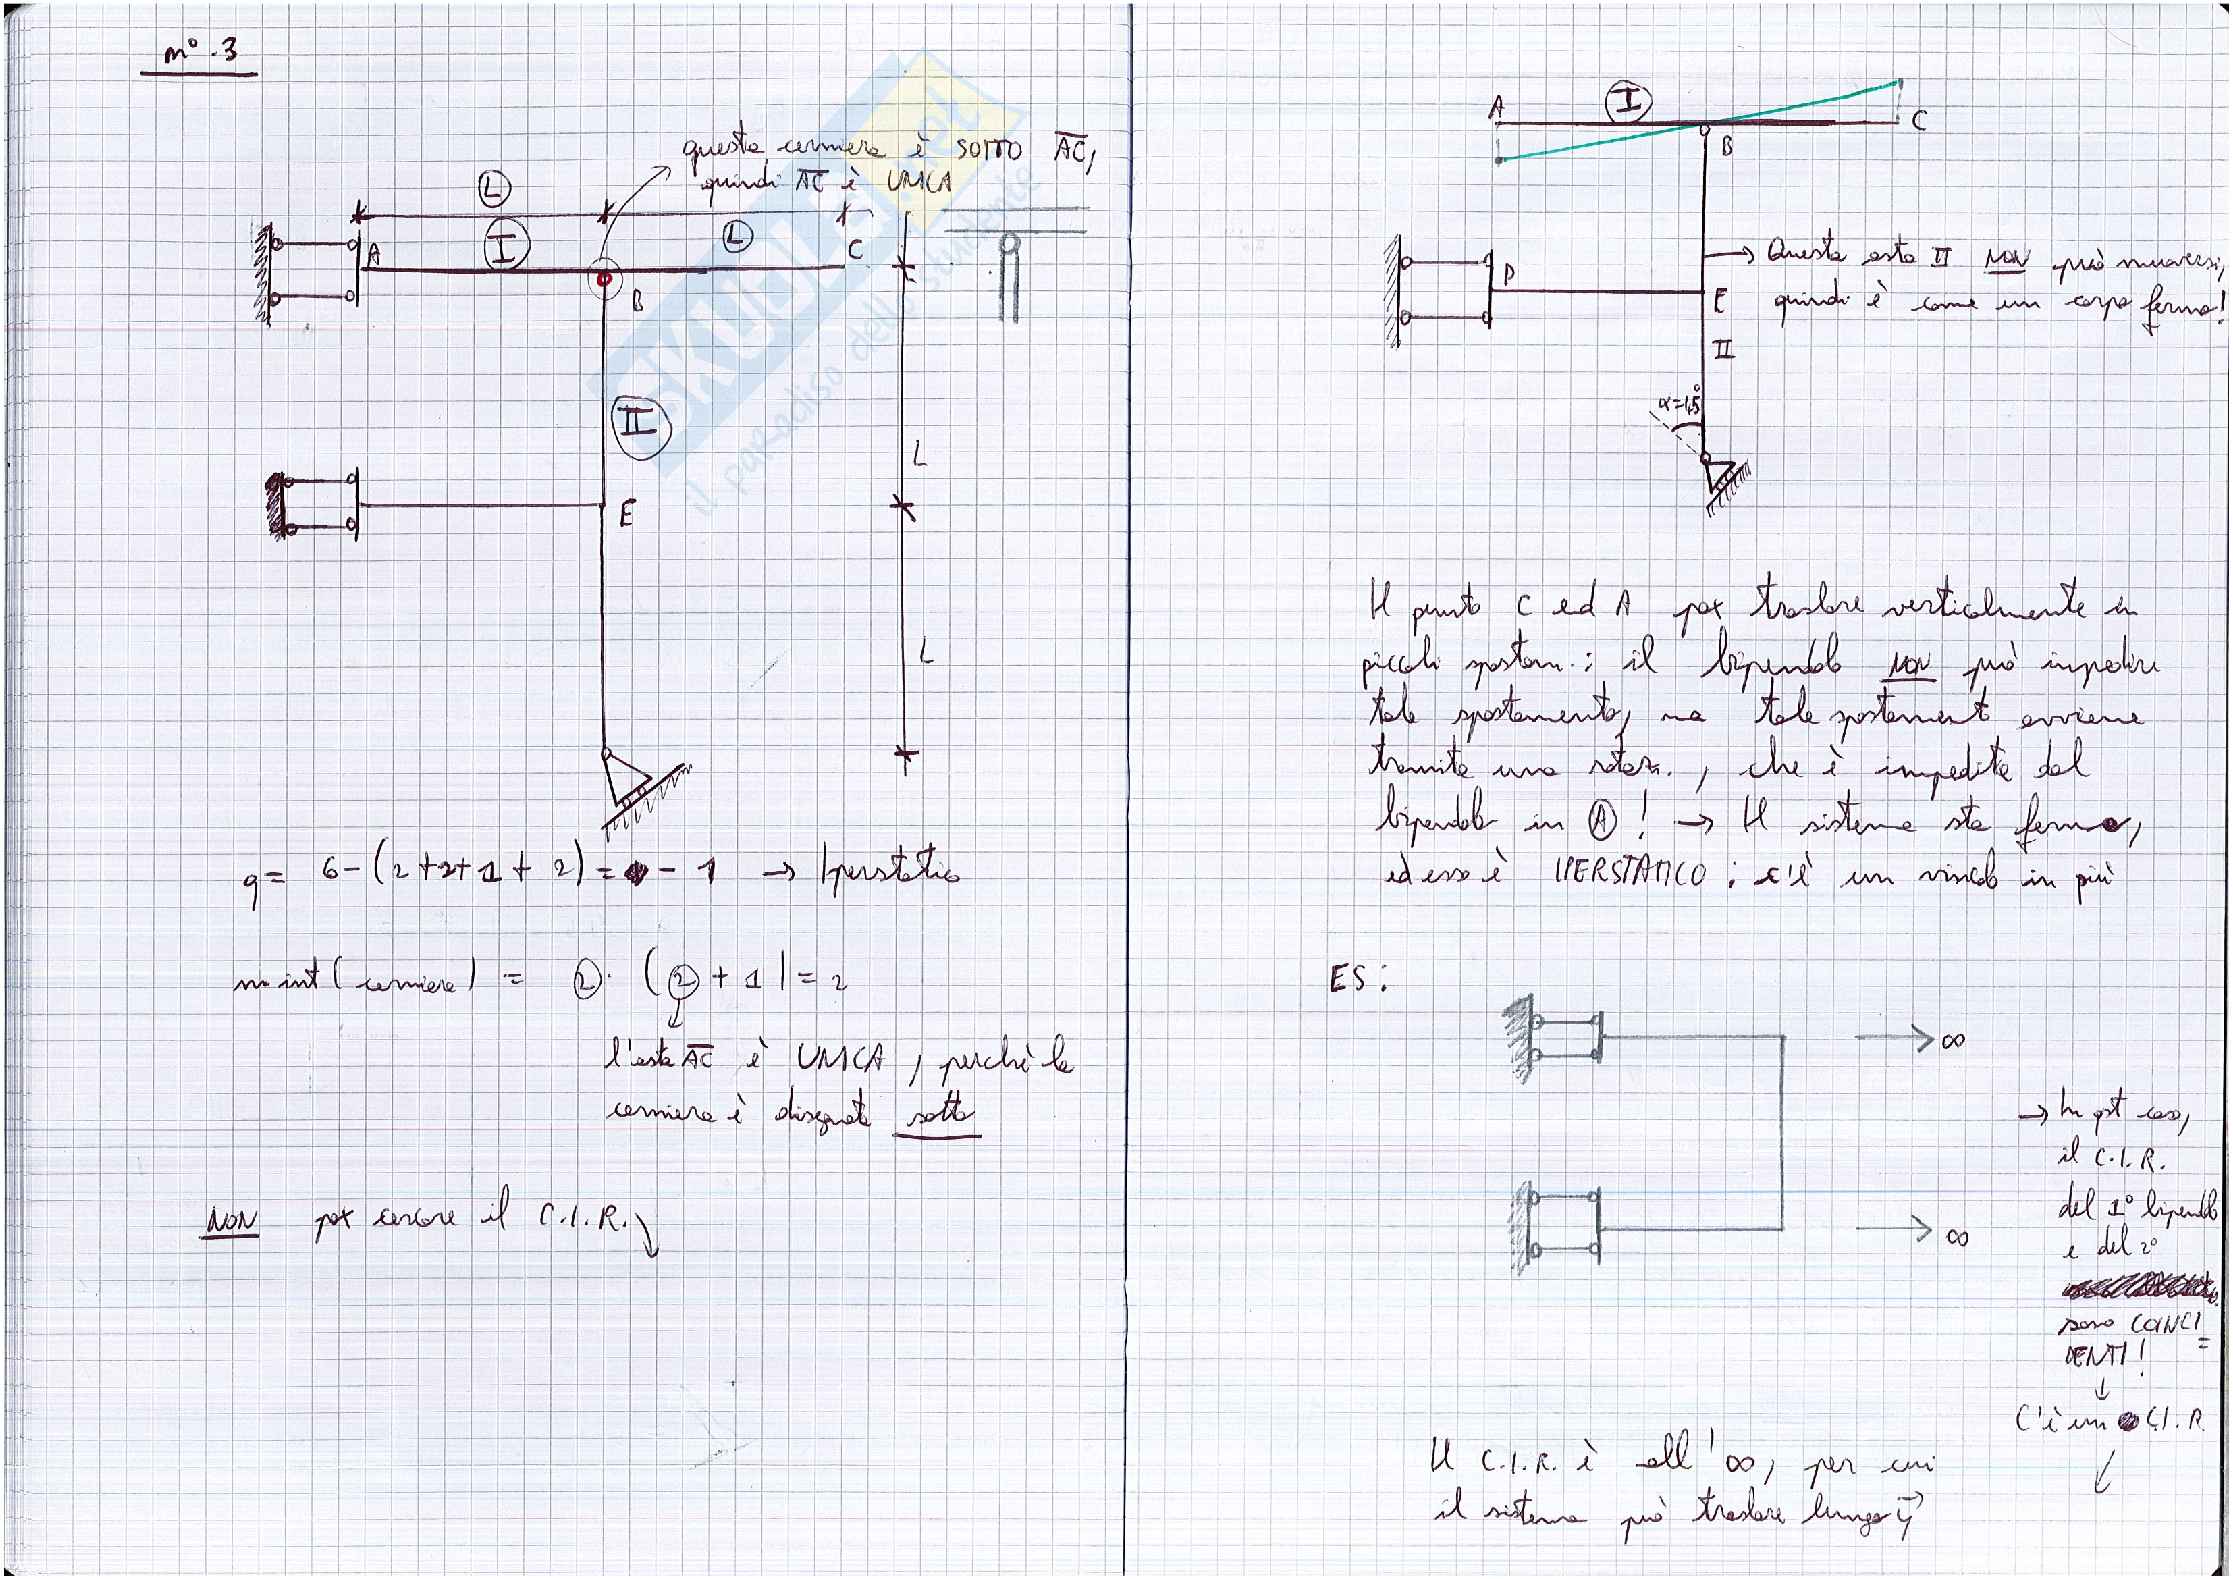 n° . 3
questa cerniera è SOTTO AC,
quindi AC è UNICA
L
I
L
A
C
B
II
E
L
L
q = 6 - (2+2+1+2) = - 1 → Iperstatico
m int (cerniera) = 2 · (2 + 1) = 2
l'asta AC è UNICA, perchè la
cerniera è disegnata sotto
NON pox cercare il C.I.R.
SKUOLA.net
il paradiso dello studente
A
I
C
B
→ Questa asta II NON può muoversi,
quindi è come un corpo fermo!
D
E
II
α=45°
Il punto C ed A pox traslare verticalmente in
piccoli spostam.; il bipendolo NON può impedire
tale spostamento, ma tale spostament avviene
tramite una rotaz., che è impedita dal
bipendolo in A! → Il sistema sta fermo,
ed esso è IPERSTATICO: c'è un vincolo in più
ES:
∞
∞
→ In qst caso,
il C.I.R.
del 1° bipendolo
e del 2°
sono COINCI=
DENTI!
↓
C'è un C.I.R.
Il C.I.R. è all'∞, per cui
il sistema può traslare lungo y